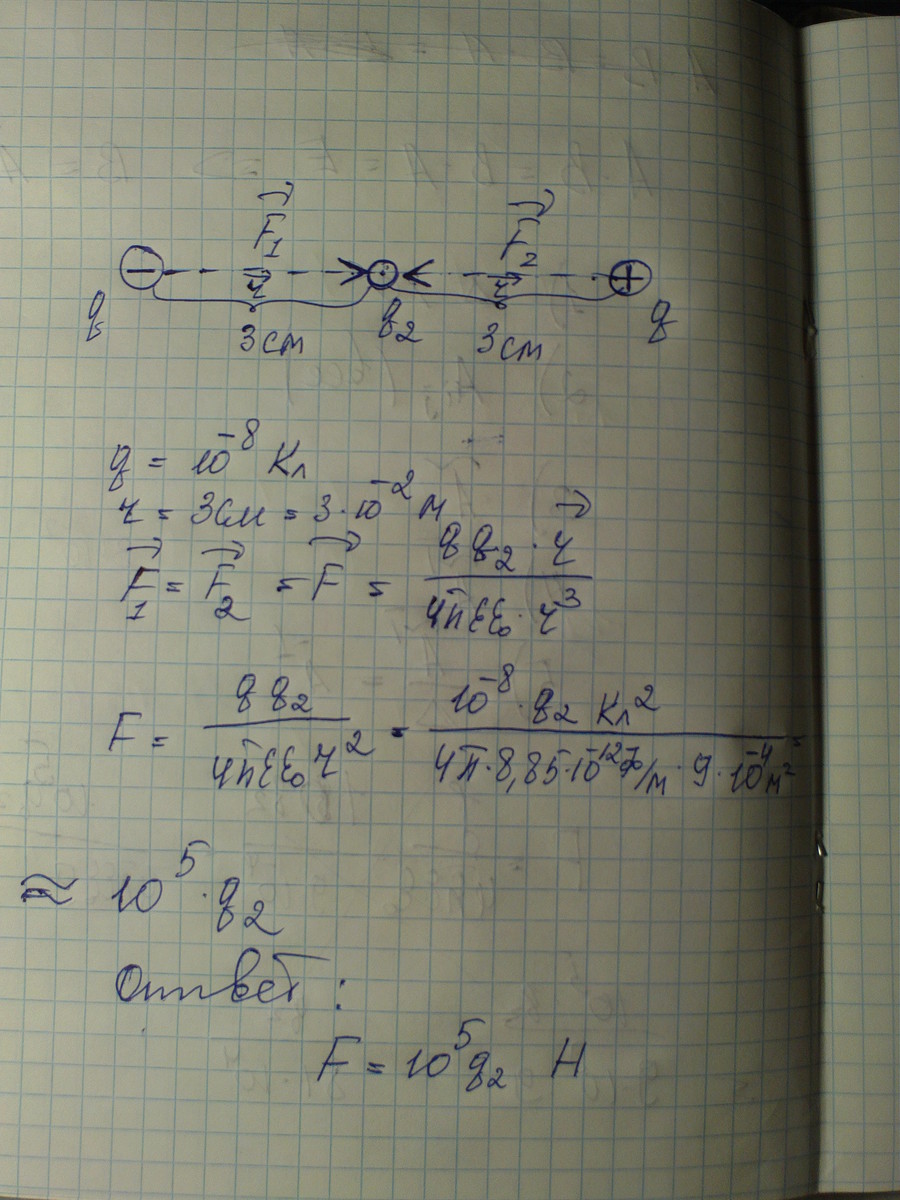 F₁→ F₂→
− r→ · r→ +
q 3см q₂ 3см q
q = 10⁻⁸ Кл
r = 3см = 3·10⁻² м
F₁→ = F₂→ = F→ = qq₂·r→ / 4πεε₀·r³
F = qq₂ / 4πεε₀r² = 10⁻⁸·q₂ Кл² / 4π·8,85·10⁻¹²Ф/м·9·10⁻⁴м² =
≈ 10⁵·q₂
Ответ:
F = 10⁵q₂ Н